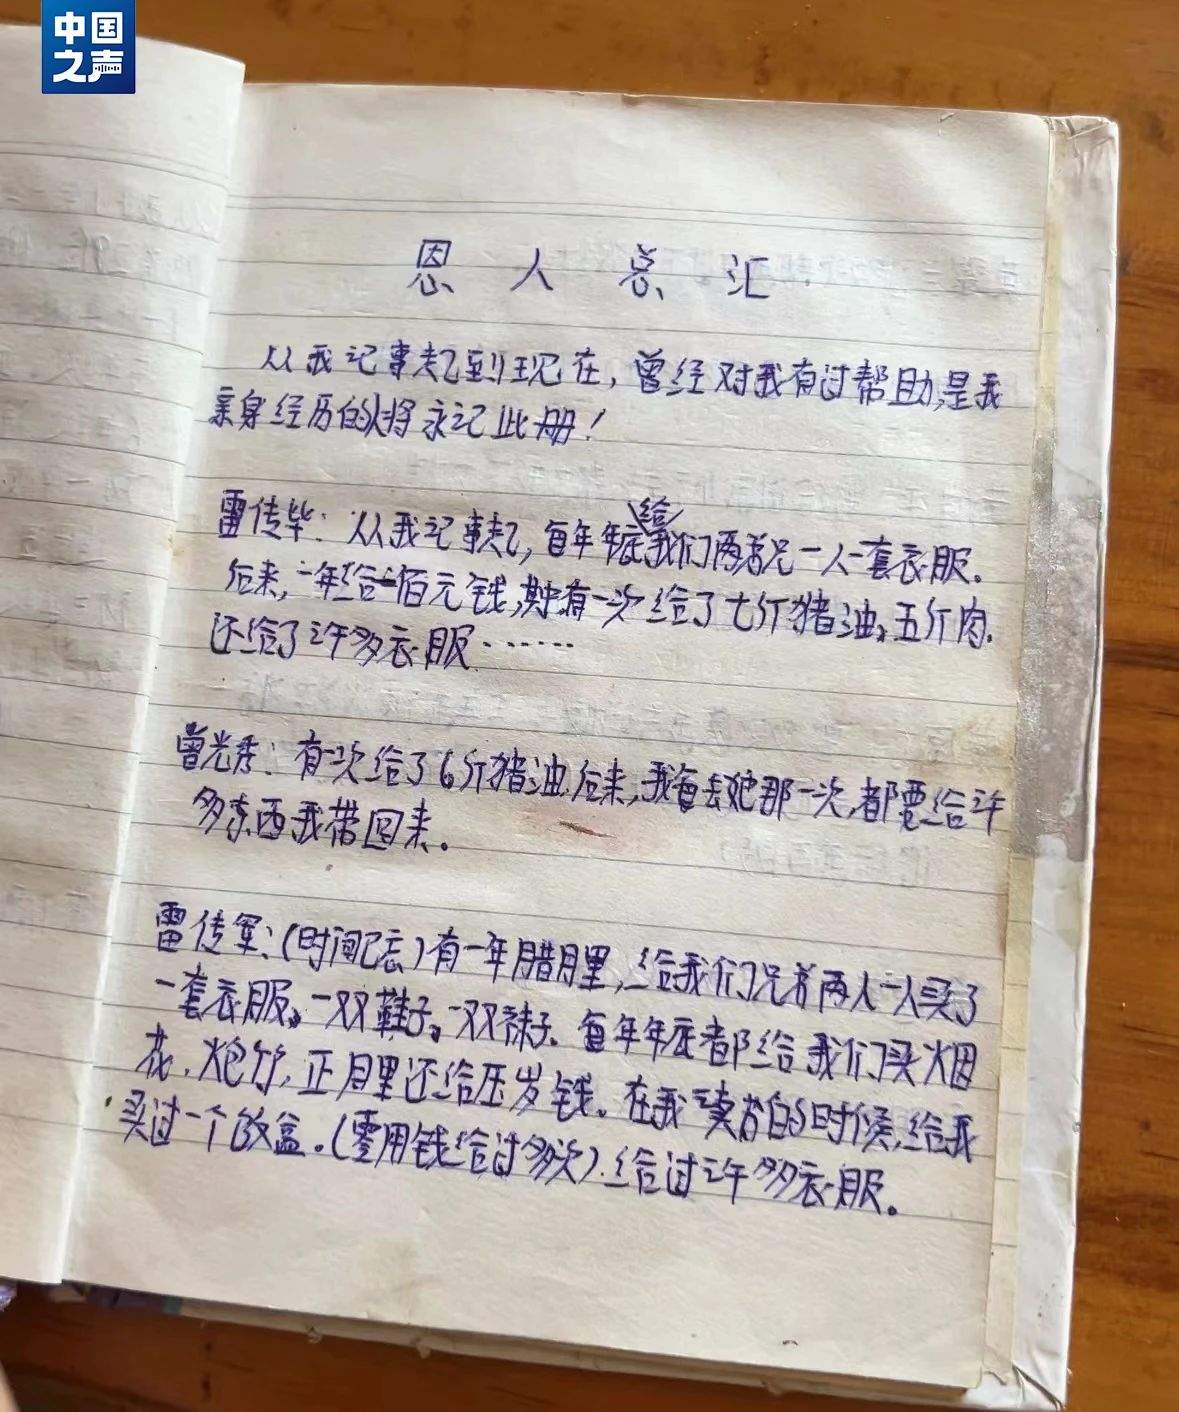 中国
之声
恩人总汇
从我记事起到现在,曾经对我有过帮助,是我
亲身经历的将永记此册!
雷传毕:从我记事起,每年年底给我们两弟兄一人一套衣服。
后来,一年给一佰元钱,其中有一次给了七斤猪油,五斤肉.
还给了许多衣服……
曾光秀:有一次给了6斤猪油.后来,我每去她那一次,都要给许
多东西我带回来。
雷传军:(时间已忘)有一年腊月里,给我们兄弟两人一人买了
一套衣服,一双鞋子,一双袜子.每年年底都给我们买烟
花,炮竹,正月里还给压岁钱。在我读书的时候,给我
买过一个饭盒。(零用钱给过多次).给过许多衣服。